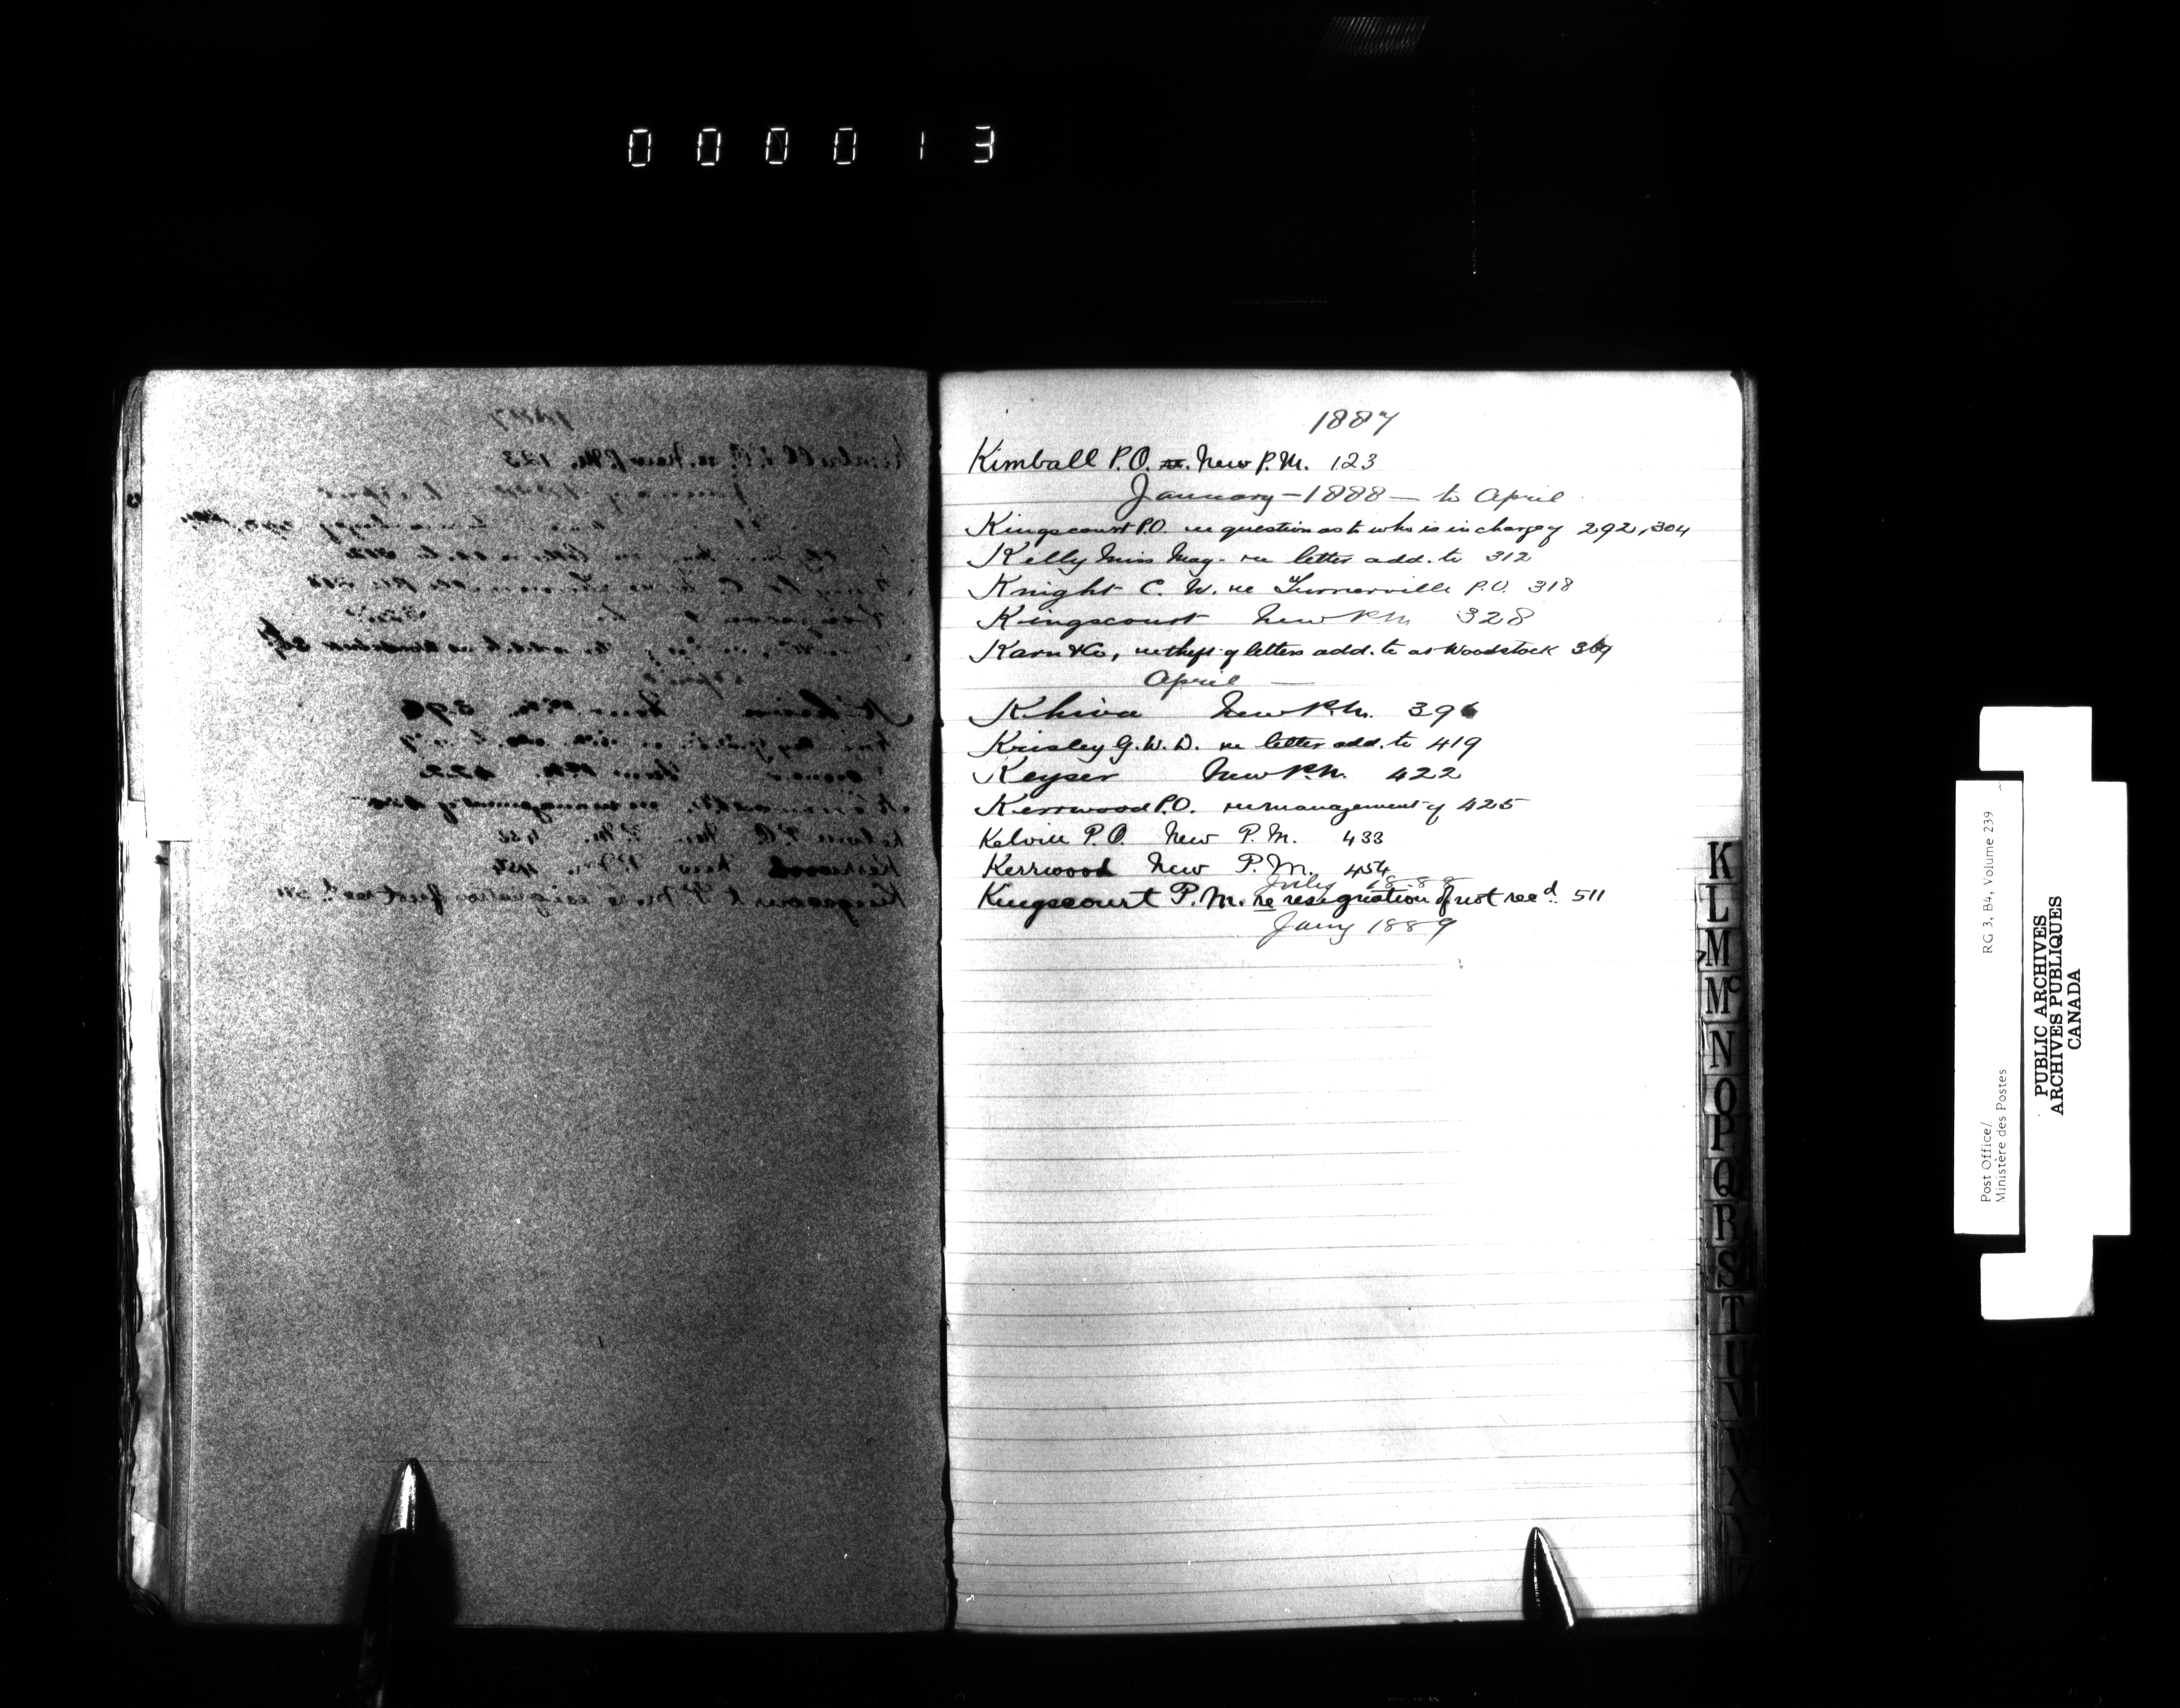 000013
1887
Kimball P.O. re. New P.M. 123
January - 1888 - to April
Kingscourt P.O. re question as to who is in charge of 292, 304
Kelly Miss Mag. re letter add. to 312
Knight C. W. re Turnerville P.O. 318
Kingscourt New P.M. 328
Karn & Co, re theft of letters add. to at Woodstock 369
April —
Khiva New P.M. 396
Krisley G. W. D. re letter add. to 419
Keyser New P.M. 422
Kerrwood P.O. re management of 425
Kelvin P.O. New P.M. 433
Kerrwood New P.M. 454
July 1888
Kingscourt P.M. re resignation of not recd. 511
Jany 1889
K
L
M
Mc
N
O
P
Q
R
S
T
U
V
W
X
Y
Z
Post Office/ RG 3, B4, Volume 239
Ministère des Postes
PUBLIC ARCHIVES
ARCHIVES PUBLIQUES
CANADA